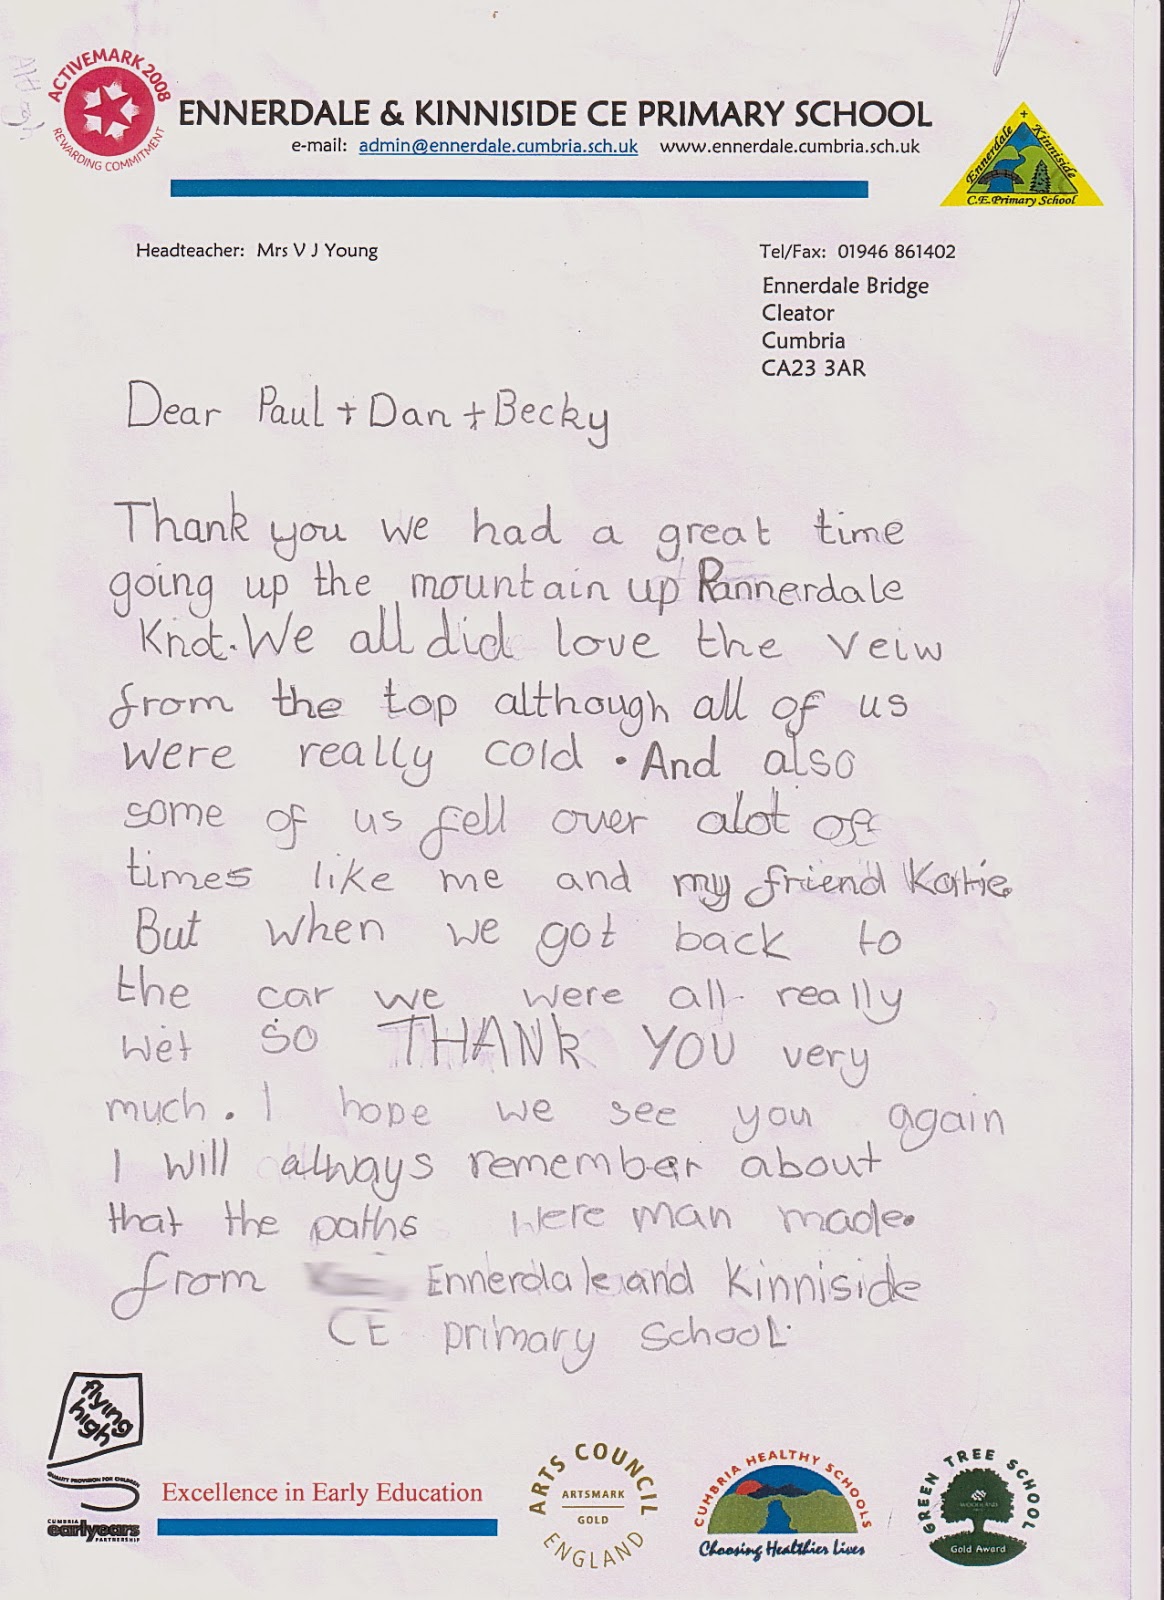 ACTIVEMARK 2008
REWARDING COMMITMENT
ENNERDALE & KINNISIDE CE PRIMARY SCHOOL
e-mail: admin@ennerdale.cumbria.sch.uk www.ennerdale.cumbria.sch.uk
Ennerdale Kinniside
C.E. Primary School
Headteacher: Mrs V J Young
Tel/Fax: 01946 861402
Ennerdale Bridge
Cleator
Cumbria
CA23 3AR
Dear Paul + Dan + Becky
Thank you we had a great time
going up the mountain up Rannerdale
Knot. We all did love the veiw
from the top although all of us
were really cold. And also
some of us fell over alot of
times like me and my friend Katie
But when we got back to
the car we were all really
wet so THANK YOU very
much. I hope we see you again
I will always remember about
that the paths were man made.
from Ennerdale and Kinniside
CE primary school.
flying high
QUALITY PROVISION FOR CHILDREN
CUMBRIA
earlyyears
PARTNERSHIP
Excellence in Early Education
ARTS COUNCIL
ARTSMARK
GOLD
ENGLAND
CUMBRIA HEALTHY SCHOOLS
Choosing Healthier Lives
GREEN TREE SCHOOL
WOODLAND
Gold Award